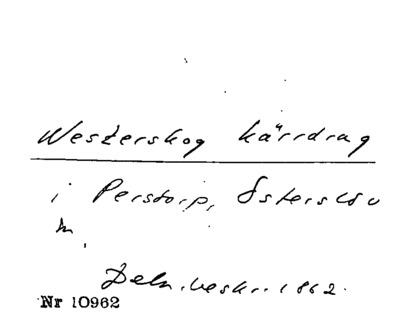 Westerskog kärrdrag
i Perstorp, Österslöv
h.
Deln.beskr. 1862.
Nr 10962